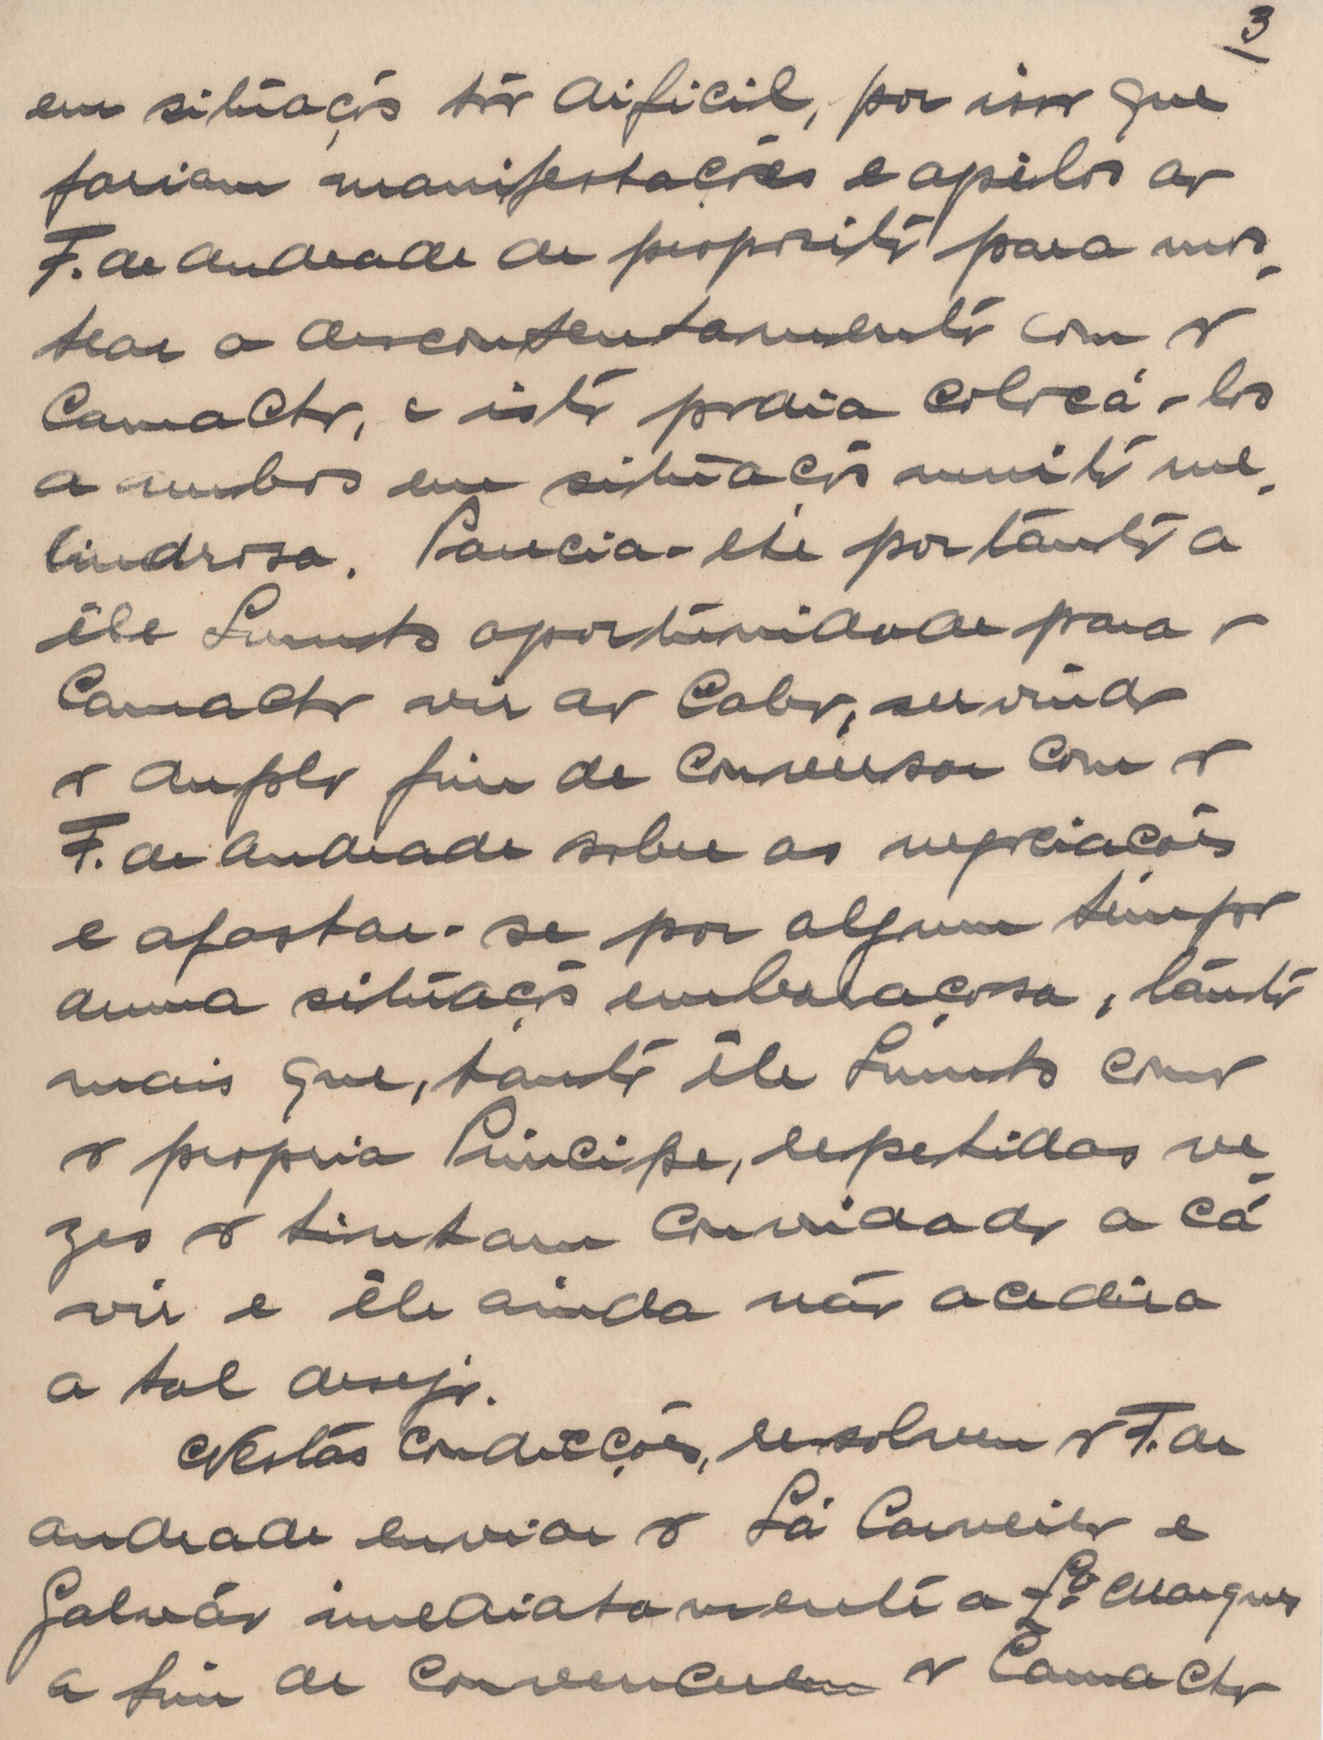 3
em situação tão dificil, por isso que
fariam manifestações e apêlos ao
F. de Andrade de proposito para mos-
trar o descontentamento com o
Camacho, e isto podia colocá-los
a ambos em situação muito me-
lindrosa. Parecia-lhe portanto a
êle Smuts oportunidade para o
Camacho vir ao Cabo, servindo
o duplo fim de conversar com o
F. de Andrade sobre as negociações
e afastar-se por algum tempo
duma situação embaraçosa, tanto
mais que, tanto êle Smuts como
o proprio Principe, repetidas ve-
zes o tinham convidado a cá
vir e êle ainda não acedera
a tal desejo.
Nestas condicções, resolveu o F. de
Andrade enviar o Sá Carneiro e
Galvão imediatamente a Lço Marques
a fim de convencerem o Camacho